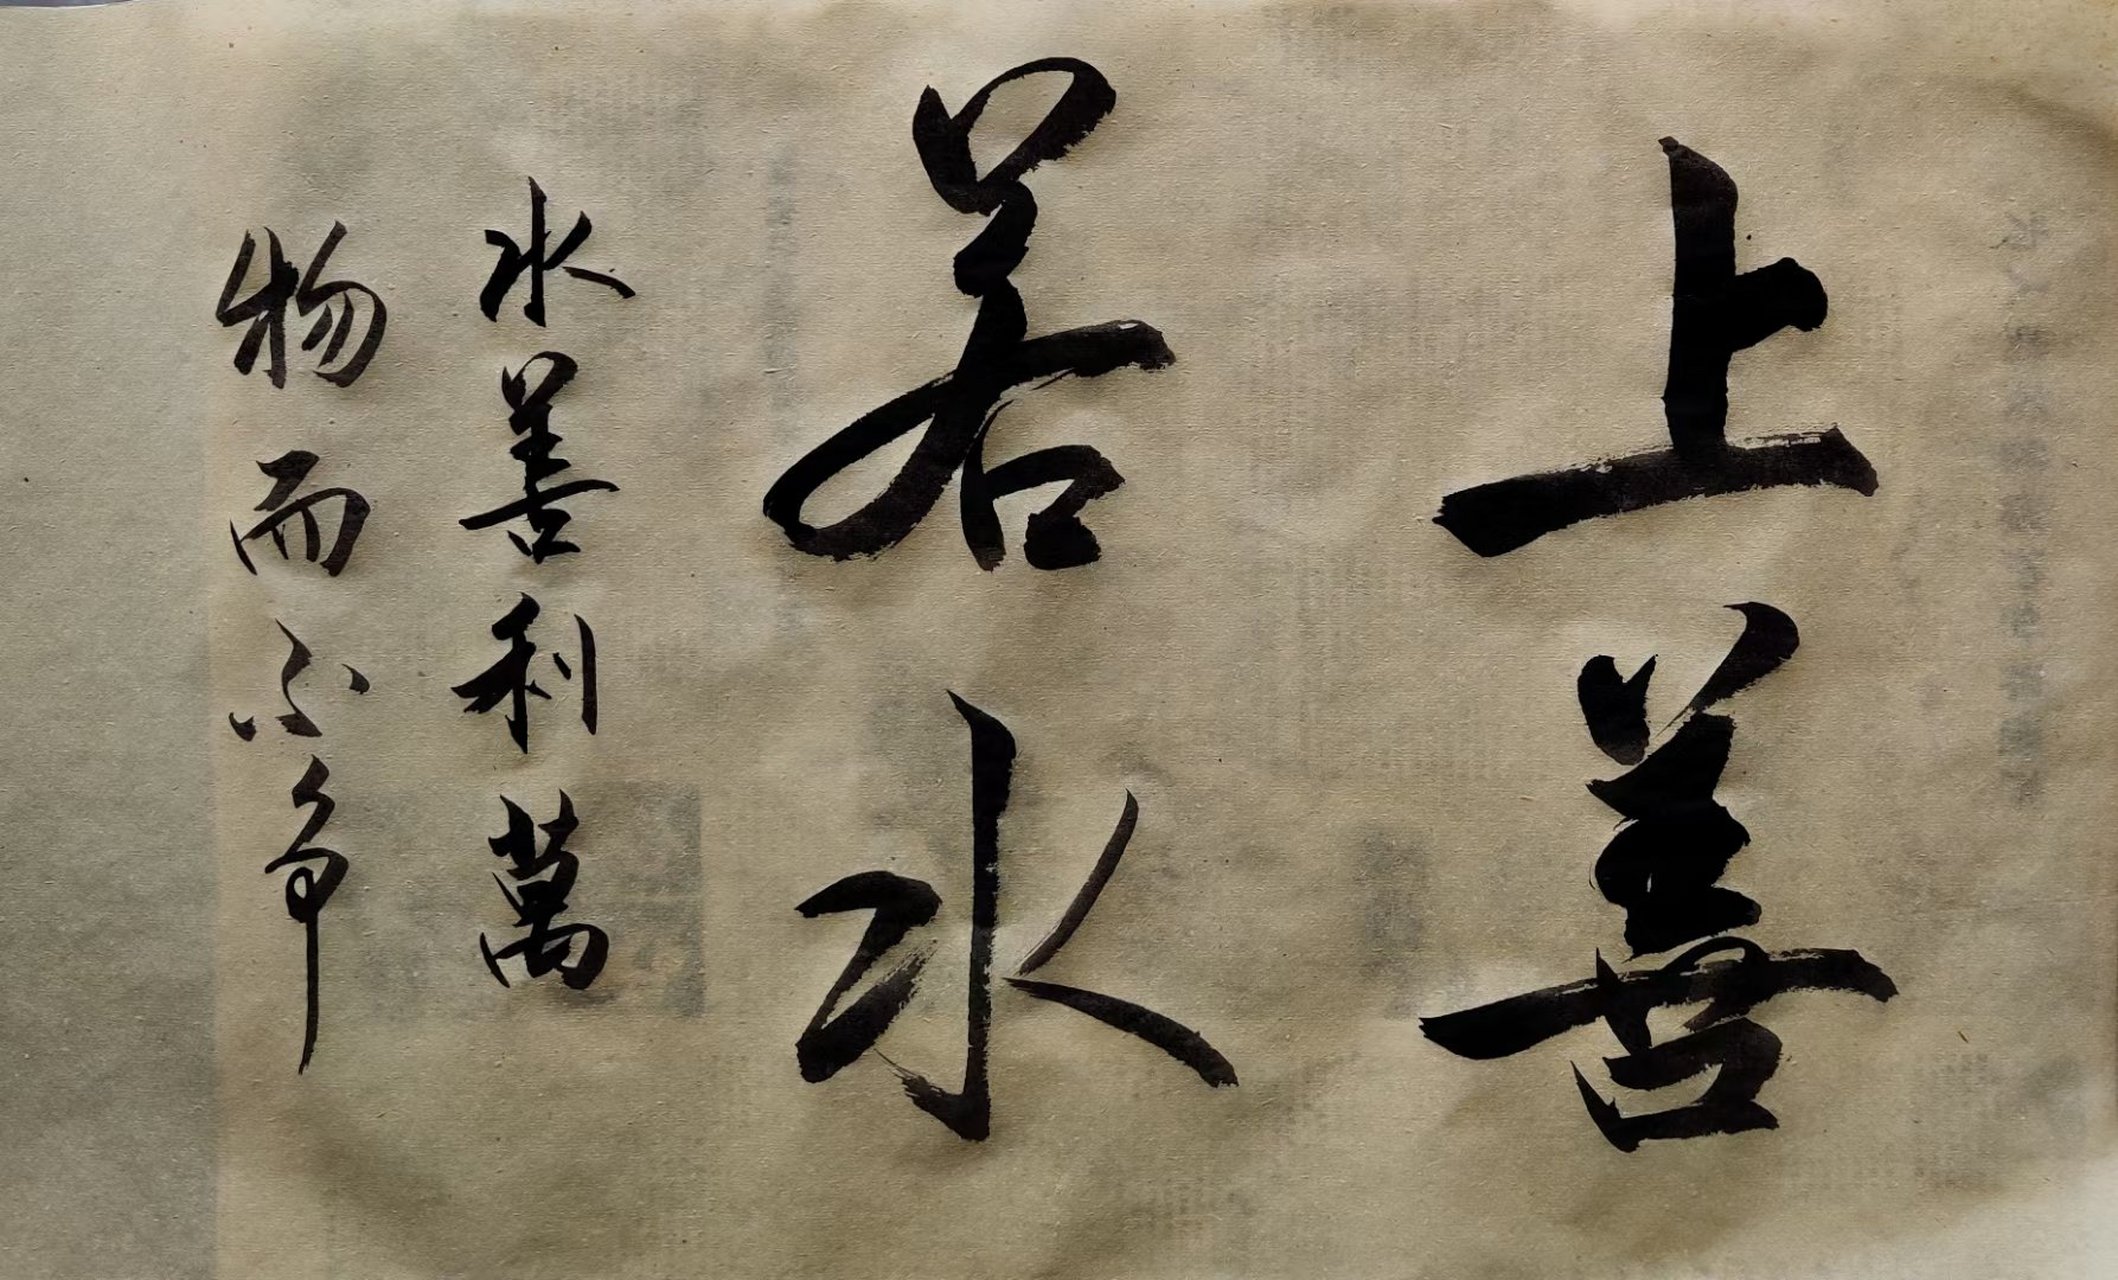 上善
若水
水善利萬
物而不争